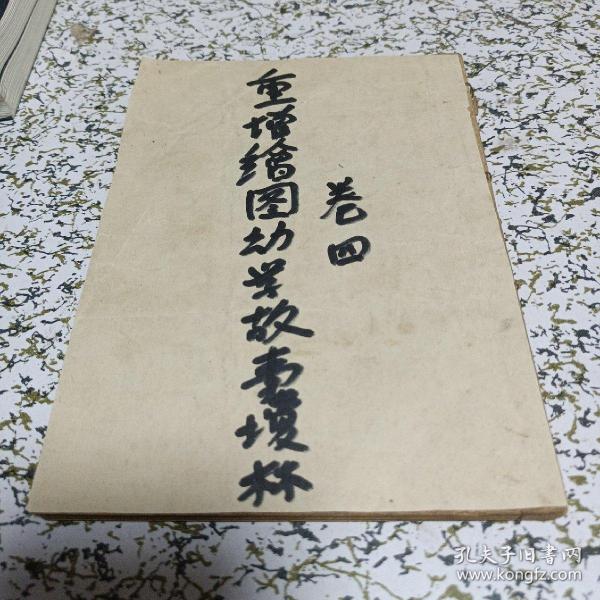 重增繪图幼学故事瓊林
卷四
孔夫子旧书网
www.kongfz.com